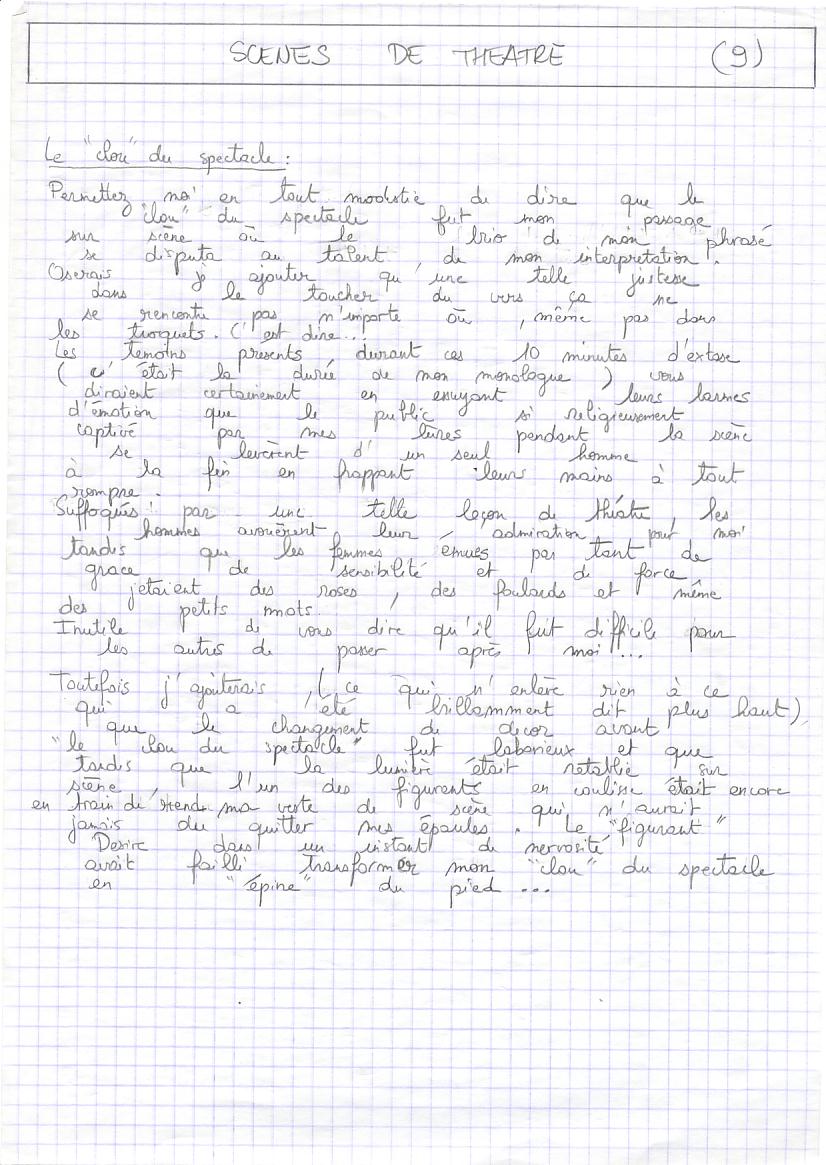 SCENES DE THEATRE (9)
Le "clou" du spectacle :
Permettez moi en tout modestie de dire que le
"clou" du spectacle fut mon passage
sur scène où le brio de mon phrasé
se disputa au talent, de mon interpretation.
Oserais j' ajouter qu'une telle justesse
dans le toucher du vers ça ne
se rencontre pas n'importe où, même pas dans
les troquets. C'est dire...
Les temoins presents, durant ces 10 minutes d'extase
(c'était la durée de mon monologue) vous
diraient certainement en essuyant leurs larmes
d'émotion que le public si religieusement
captivé par mes lèvres pendant la scène
se levèrent d'un seul homme
à la fin en frappant leurs mains à tout
rompre.
Suffoqués par une telle leçon de théatre, les
hommes avouèrent leur admiration pour moi
tandis que les femmes émues par tant de
grace de sensibilité et de force
jetaient des roses, des foulards et même
des petits mots.
Inutile de vous dire qu'il fut difficile pour
les autres de passer après moi...
Toutefois j'ajouterais, (ce qui n'enlève rien à ce
qui a été brillamment dit plus haut),
que le changement de decor avant
"le clou du spectacle" fut laborieux et que
tandis que la lumière était retablie sur
scène, l'un des figurants en coulisse était encore
en train de tendre ma veste de scène qui n'aurait
jamais du quitter mes épaules. Le "figurant"
Desire dans un instant de nervosité
avait failli transformer mon "clou" du spectacle
en "épine" du pied...